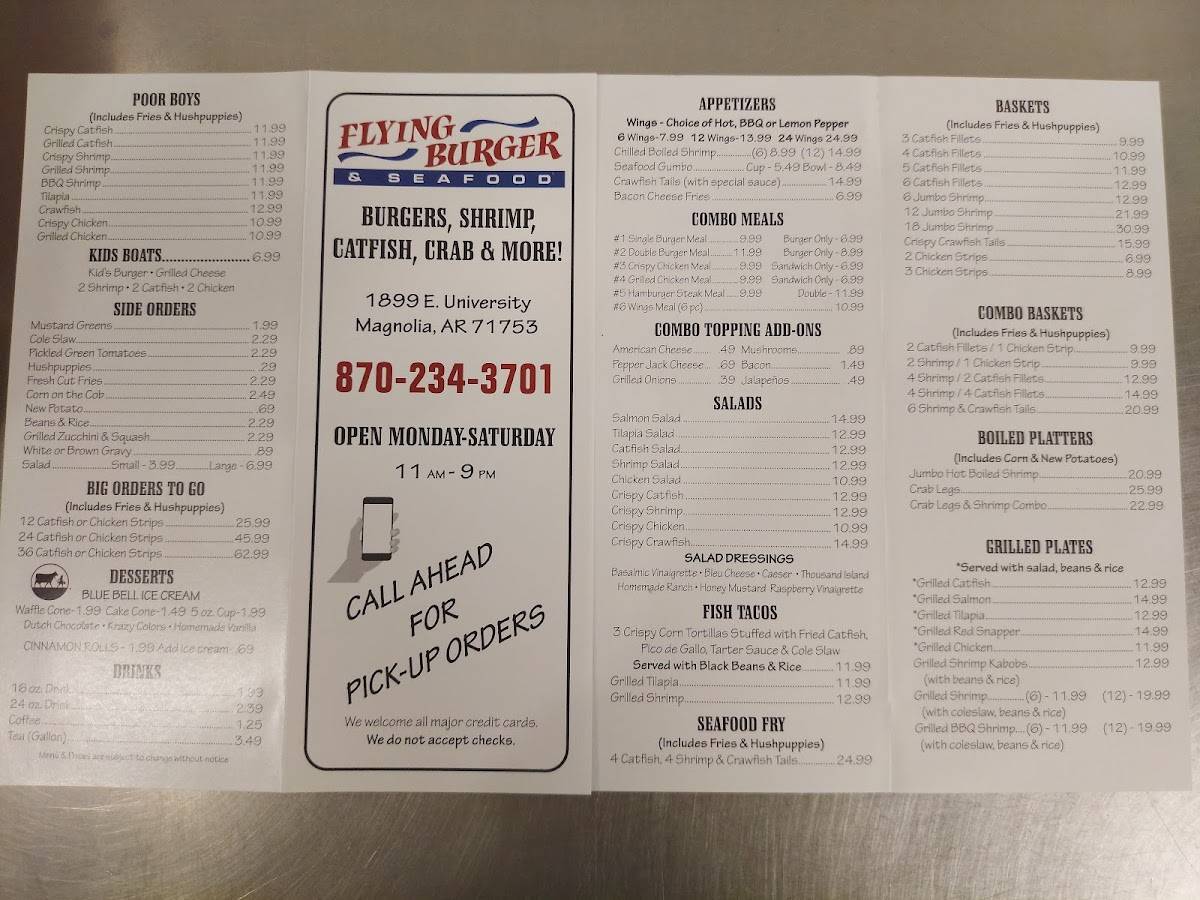 POOR BOYS
(Includes Fries & Hushpuppies)
Crispy Catfish 11.99
Grilled Catfish 11.99
Crispy Shrimp 11.99
Grilled Shrimp 11.99
BBQ Shrimp 11.99
Tilapia 11.99
Crawfish 12.99
Crispy Chicken 10.99
Grilled Chicken 10.99
KIDS BOATS 6.99
Kid's Burger • Grilled Cheese
2 Shrimp • 2 Catfish • 2 Chicken
SIDE ORDERS
Mustard Greens 1.99
Cole Slaw 2.29
Pickled Green Tomatoes 2.29
Hushpuppies .29
Fresh Cut Fries 2.29
Corn on the Cob 2.49
New Potato .69
Beans & Rice 2.29
Grilled Zucchini & Squash 2.29
White or Brown Gravy .89
Salad Small - 3.99 Large - 6.99
BIG ORDERS TO GO
(Includes Fries & Hushpuppies)
12 Catfish or Chicken Strips 25.99
24 Catfish or Chicken Strips 45.99
36 Catfish or Chicken Strips 62.99
DESSERTS
BLUE BELL ICE CREAM
Waffle Cone-1.99 Cake Cone-1.49 5 oz. Cup-1.99
Dutch Chocolate • Krazy Colors • Homemade Vanilla
CINNAMON ROLLS - 1.99 Add Ice cream- .69
DRINKS
16 oz. Drink 1.99
24 oz. Drink 2.39
Coffee 1.25
Tea (Gallon) 3.49
Menu & Prices are subject to change without notice
FLYING
BURGER
& SEAFOOD
BURGERS, SHRIMP,
CATFISH, CRAB & MORE!
1899 E. University
Magnolia, AR 71753
870-234-3701
OPEN MONDAY-SATURDAY
11 AM - 9 PM
CALL AHEAD
FOR
PICK-UP ORDERS
We welcome all major credit cards.
We do not accept checks.
APPETIZERS
Wings - Choice of Hot, BBQ or Lemon Pepper
6 Wings-7.99 12 Wings-13.99 24 Wings 24.99
Chilled Boiled Shrimp (6) 8.99 (12) 14.99
Seafood Gumbo Cup - 5.49 Bowl - 8.49
Crawfish Tails (with special sauce) 14.99
Bacon Cheese Fries 6.99
COMBO MEALS
#1 Single Burger Meal 9.99 Burger Only - 6.99
#2 Double Burger Meal 11.99 Burger Only - 8.99
#3 Crispy Chicken Meal 9.99 Sandwich Only - 6.99
#4 Grilled Chicken Meal 9.99 Sandwich Only - 6.99
#5 Hamburger Steak Meal 9.99 Double - 11.99
#6 Wings Meal (6 pc) 10.99
COMBO TOPPING ADD-ONS
American Cheese .49 Mushrooms .89
Pepper Jack Cheese .69 Bacon 1.49
Grilled Onions .39 Jalapeños .49
SALADS
Salmon Salad 14.99
Tilapia Salad 12.99
Catfish Salad 12.99
Shrimp Salad 12.99
Chicken Salad 10.99
Crispy Catfish 12.99
Crispy Shrimp 12.99
Crispy Chicken 10.99
Crispy Crawfish 14.99
SALAD DRESSINGS
Basalmic Vinaigrette • Bleu Cheese • Caeser • Thousand Island
Homemade Ranch • Honey Mustard Raspberry Vinaigrette
FISH TACOS
3 Crispy Corn Tortillas Stuffed with Fried Catfish,
Pico de Gallo, Tarter Sauce & Cole Slaw
Served with Black Beans & Rice 11.99
Grilled Tilapia 11.99
Grilled Shrimp 12.99
SEAFOOD FRY
(Includes Fries & Hushpuppies)
4 Catfish, 4 Shrimp & Crawfish Tails 24.99
BASKETS
(Includes Fries & Hushpuppies)
3 Catfish Fillets 9.99
4 Catfish Fillets 10.99
5 Catfish Fillets 11.99
6 Catfish Fillets 12.99
6 Jumbo Shrimp 12.99
12 Jumbo Shrimp 21.99
18 Jumbo Shrimp 30.99
Crispy Crawfish Tails 15.99
2 Chicken Strips 6.99
3 Chicken Strips 8.99
COMBO BASKETS
(Includes Fries & Hushpuppies)
2 Catfish Fillets / 1 Chicken Strip 9.99
2 Shrimp / 1 Chicken Strip 9.99
4 Shrimp / 2 Catfish Fillets 12.99
4 Shrimp / 4 Catfish Fillets 14.99
6 Shrimp & Crawfish Tails 20.99
BOILED PLATTERS
(Includes Corn & New Potatoes)
Jumbo Hot Boiled Shrimp 20.99
Crab Legs 25.99
Crab Legs & Shrimp Combo 22.99
GRILLED PLATES
*Served with salad, beans & rice
*Grilled Catfish 12.99
*Grilled Salmon 14.99
*Grilled Tilapia 12.99
*Grilled Red Snapper 14.99
*Grilled Chicken 11.99
Grilled Shrimp Kabobs 12.99
(with beans & rice)
Grilled Shrimp (6) - 11.99 (12) - 19.99
(with coleslaw, beans & rice)
Grilled BBQ Shrimp (6) - 11.99 (12) - 19.99
(with coleslaw, beans & rice)